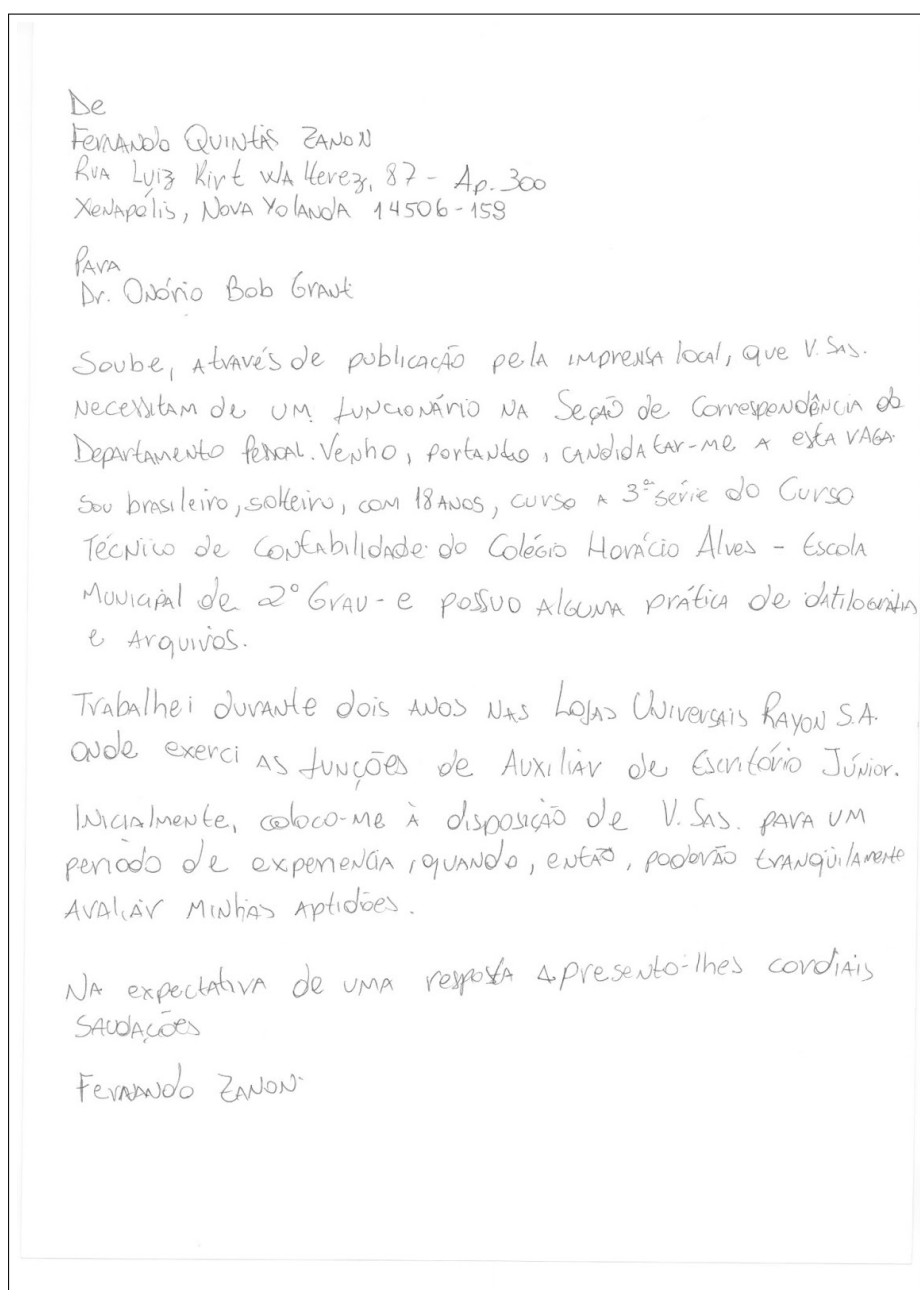 De
Fernando Quintas Zanon
Rua Luiz Kirt Wallerez, 87 - Ap. 300
Xenapolis, Nova Yolanda 14506-159
Para
Dr. Onório Bob Grant
Soube, através de publicação pela imprensa local, que V. Sas.
necessitam de um funcionário na Seção de Correspondência do
Departamento Pessoal. Venho, portanto, candidatar-me a esta vaga.
Sou brasileiro, solteiro, com 18 anos, curso a 3ª série do Curso
Técnico de Contabilidade do Colégio Horácio Alves - Escola
Municipal de 2º Grau - e possuo alguma prática de datilografia
e arquivos.
Trabalhei durante dois anos nas Lojas Universais Rayon S.A.
onde exerci as funções de Auxiliar de Escritório Júnior.
Inicialmente, coloco-me à disposição de V. Sas. para um
periodo de experiencia, quando, então, poderão tranqüilamente
avaliar minhas aptidões.
Na expectativa de uma resposta apresento-lhes cordiais
saudações
Fernando Zanon